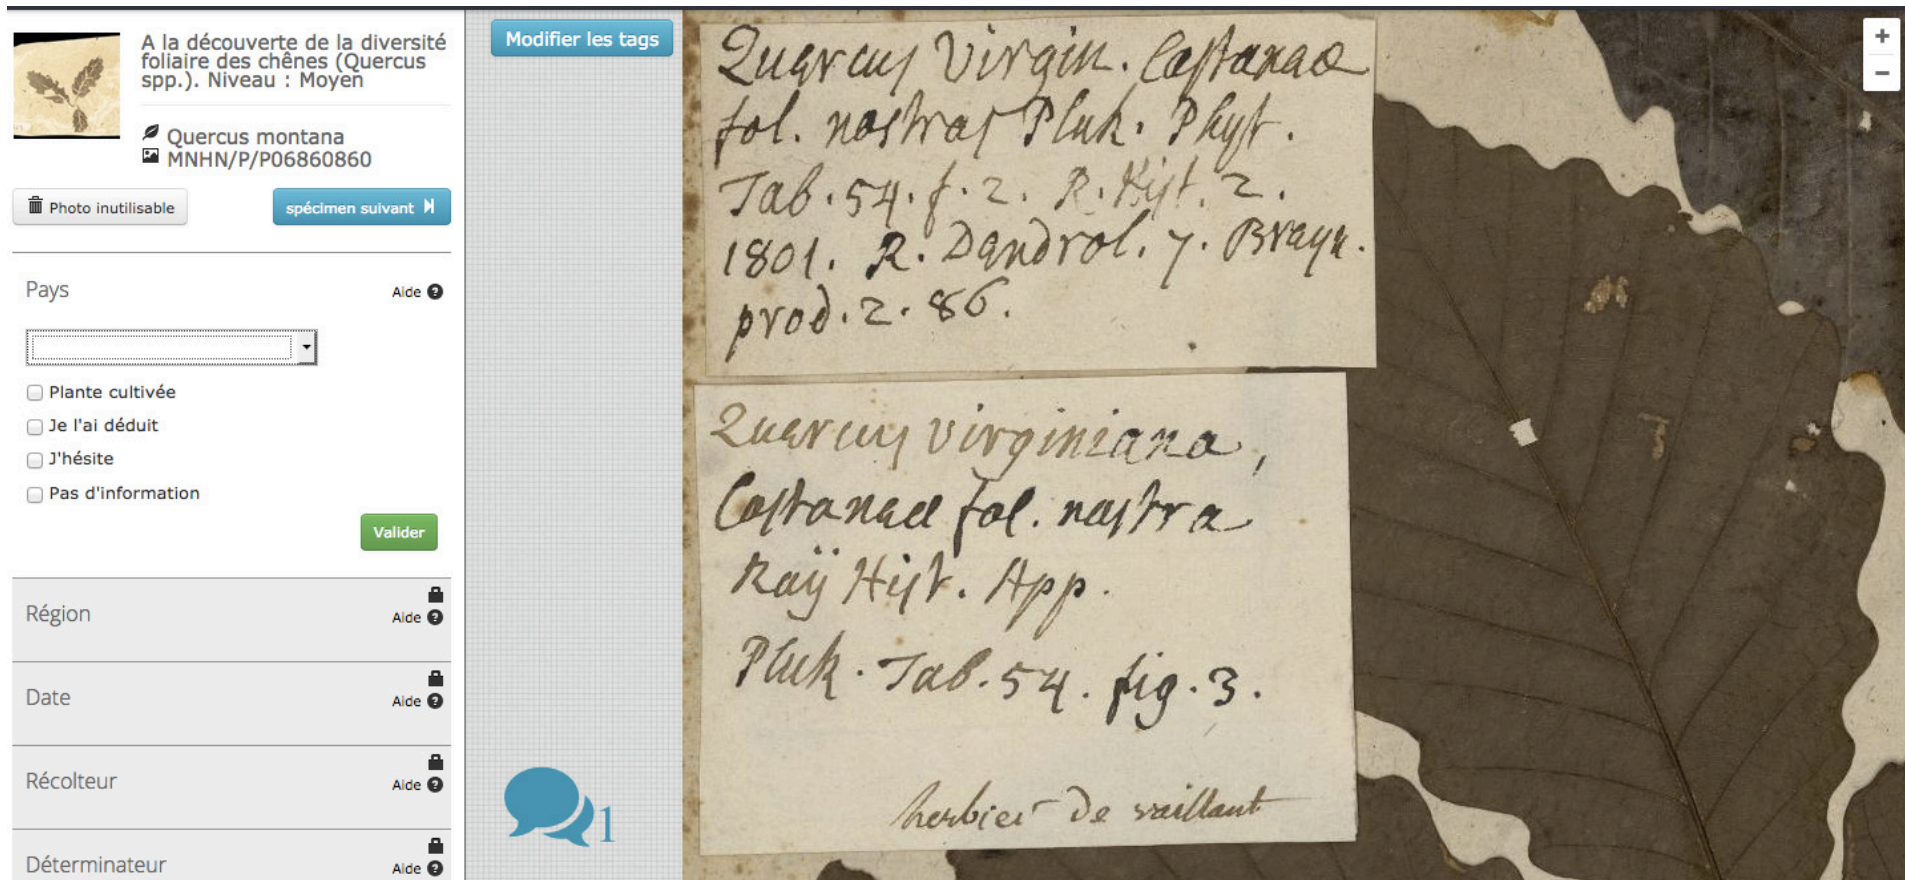 A la découverte de la diversité
foliaire des chênes (Quercus
spp.). Niveau : Moyen
Quercus montana
MNHN/P/P06860860
Photo inutilisable
spécimen suivant
Pays
Aide ?
Plante cultivée
Je l'ai déduit
J'hésite
Pas d'information
Valider
Région
Aide ?
Date
Aide ?
Récolteur
Aide ?
Déterminateur
Aide ?
Modifier les tags
1
Quercus Virgin. Castaneae
fol. nostras Pluk. Phyt.
Tab. 54. f. 2. R. Hist. 2.
1801. R. Dandrol. 7. Brayn.
prod. 2. 86.
Quercus virginiana,
Castaneae fol. nostra
Raÿ Hist. App.
Pluk. Tab. 54. fig. 3.
herbier de vaillant
+
−